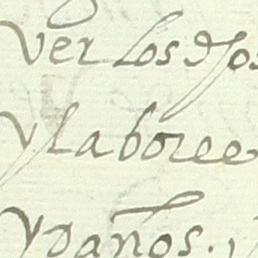 ver los dos
y labore e
y daños.